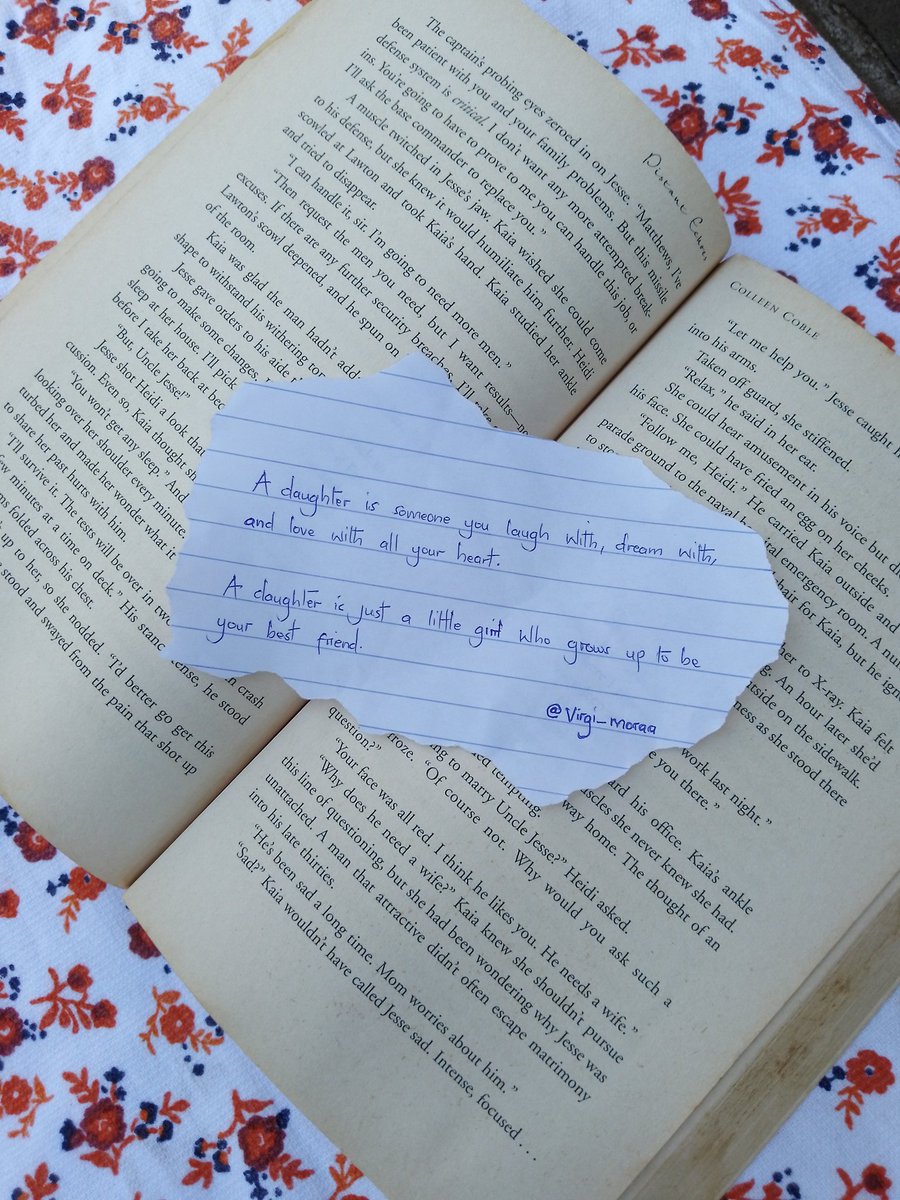 Distant Echoes
The captain's probing eyes zeroed in on Jesse. "Matthews, I've
been patient with you and your family problems. But this missile
defense system is critical. I don't want any more attempted break-
ins. You're going to have to prove to me you can handle this job, or
I'll ask the base commander to replace you."
A muscle twitched in Jesse's jaw. Kaia wished she could come
to his defense, but she knew it would humiliate him further. Heidi
scowled at Lawton and took Kaia's hand. Kaia studied her ankle
and tried to disappear.
"I can handle it, sir. I'm going to need more men."
"Then request the men you need, but I want results—no
excuses. If there are any further security breaches, I'll
Lawton's scowl deepened, and he spun on
of the room.
Kaia was glad the man hadn't
shape to withstand his withering
Jesse gave orders to his aide
going to make some changes,
sleep at her house. I'll pick
before I take her back at
"But, Uncle Jesse!"
Jesse shot Heidi a look that
cussion. Even so, Kaia thought
"You won't get any sleep." And
looking over her shoulder every minute,
turbed her and made her wonder what it
to share her past hurts with him.
"I'll survive it. The tests will be over in two
few minutes at a time on deck." His stance
folded across his chest.
up to her, so she nodded. "I'd better go get this
stood and swayed from the pain that shot up
crash
he stood
A daughter is someone you laugh with, dream with,
and love with all your heart.
A daughter is just a little girl who grows up to be
your best friend.
@Virgi_moraa
COLLEEN COBLE
"Let me help you." Jesse caught
into his arms.
Taken off guard, she stiffened.
"Relax," he said in her ear.
She could hear amusement in his voice but
his face. She could have fried an egg on her cheeks.
"Follow me, Heidi." He carried Kaia outside and
parade ground to the naval emergency room. A
for Kaia, but he
to X-ray. Kaia felt
An hour later she'd
outside on the sidewalk.
as she stood there
work last night."
you there."
his office. Kaia's ankle
she never knew she had.
way home. The thought of an
tempting.
to marry Uncle Jesse?" Heidi asked.
froze. "Of course not. Why would you ask such a
question?"
"Your face was all red. I think he likes you. He needs a wife."
"Why does he need a wife?" Kaia knew she shouldn't pursue
this line of questioning, but she had been wondering why Jesse was
unattached. A man that attractive didn't often escape matrimony
into his late thirties.
"He's been sad a long time. Mom worries about him."
"Sad?" Kaia wouldn't have called Jesse sad. Intense, focused . . .